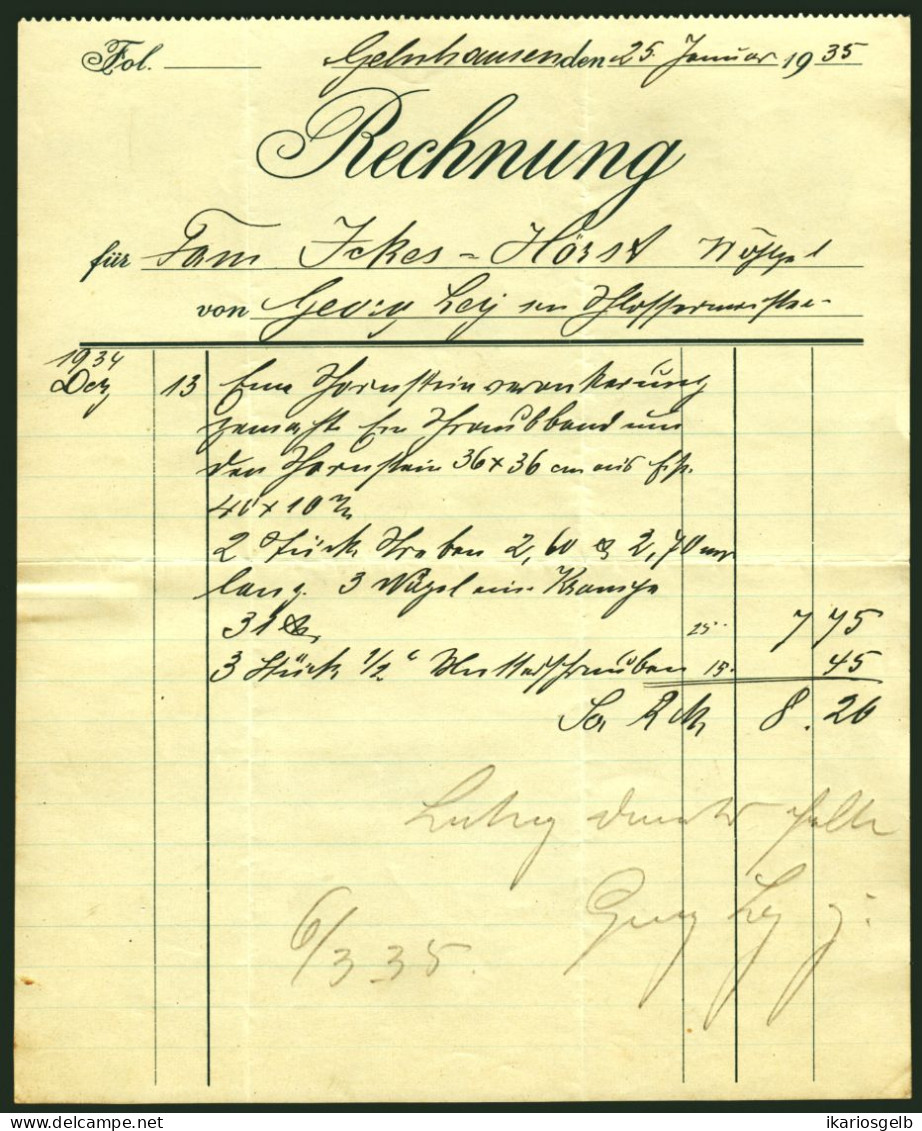 Fol.
Gelnhausen den 25. Januar 1935
Rechnung
für Fam Ickes - Hörst
von Georg Ley sen Schlossermeister
1934
Dez 13 Eine Schornsteinverankerung
gemacht Ein Schraubband um
den Schornstein 36 x 36 cm aus
40 x 10 m/m
2 Stück Streben 2,60 & 2,70 mtr
lang. 3 Nägel eine Krampe
31 25 7 75
3 Stück 1/2" Mutterschrauben 15. 45
Sa Rm 8.20
dankend
Georg Ley j.
6/3 35.
ikariosgelb